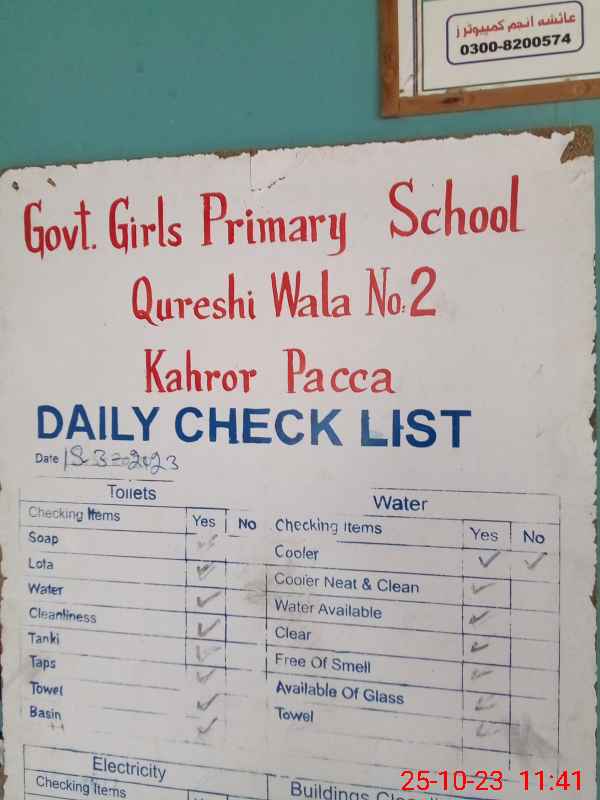 عائشہ انجم کمپیوٹرز
0300-8200574
Govt. Girls Primary School
Qureshi Wala No:2
Kahror Pacca
DAILY CHECK LIST
Date
Toilets
Checking Items Yes No
Soap ✓
Lota ✓
Water ✓
Cleanliness ✓
Tanki ✓
Taps ✓
Towel ✓
Basin ✓
Water
Checking Items Yes No
Cooler ✓ ✓
Cooler Neat & Clean ✓
Water Available ✓
Clear ✓
Free Of Smell ✓
Available Of Glass ✓
Towel ✓
Electricity
Checking Items
Buildings
25-10-23 11:41